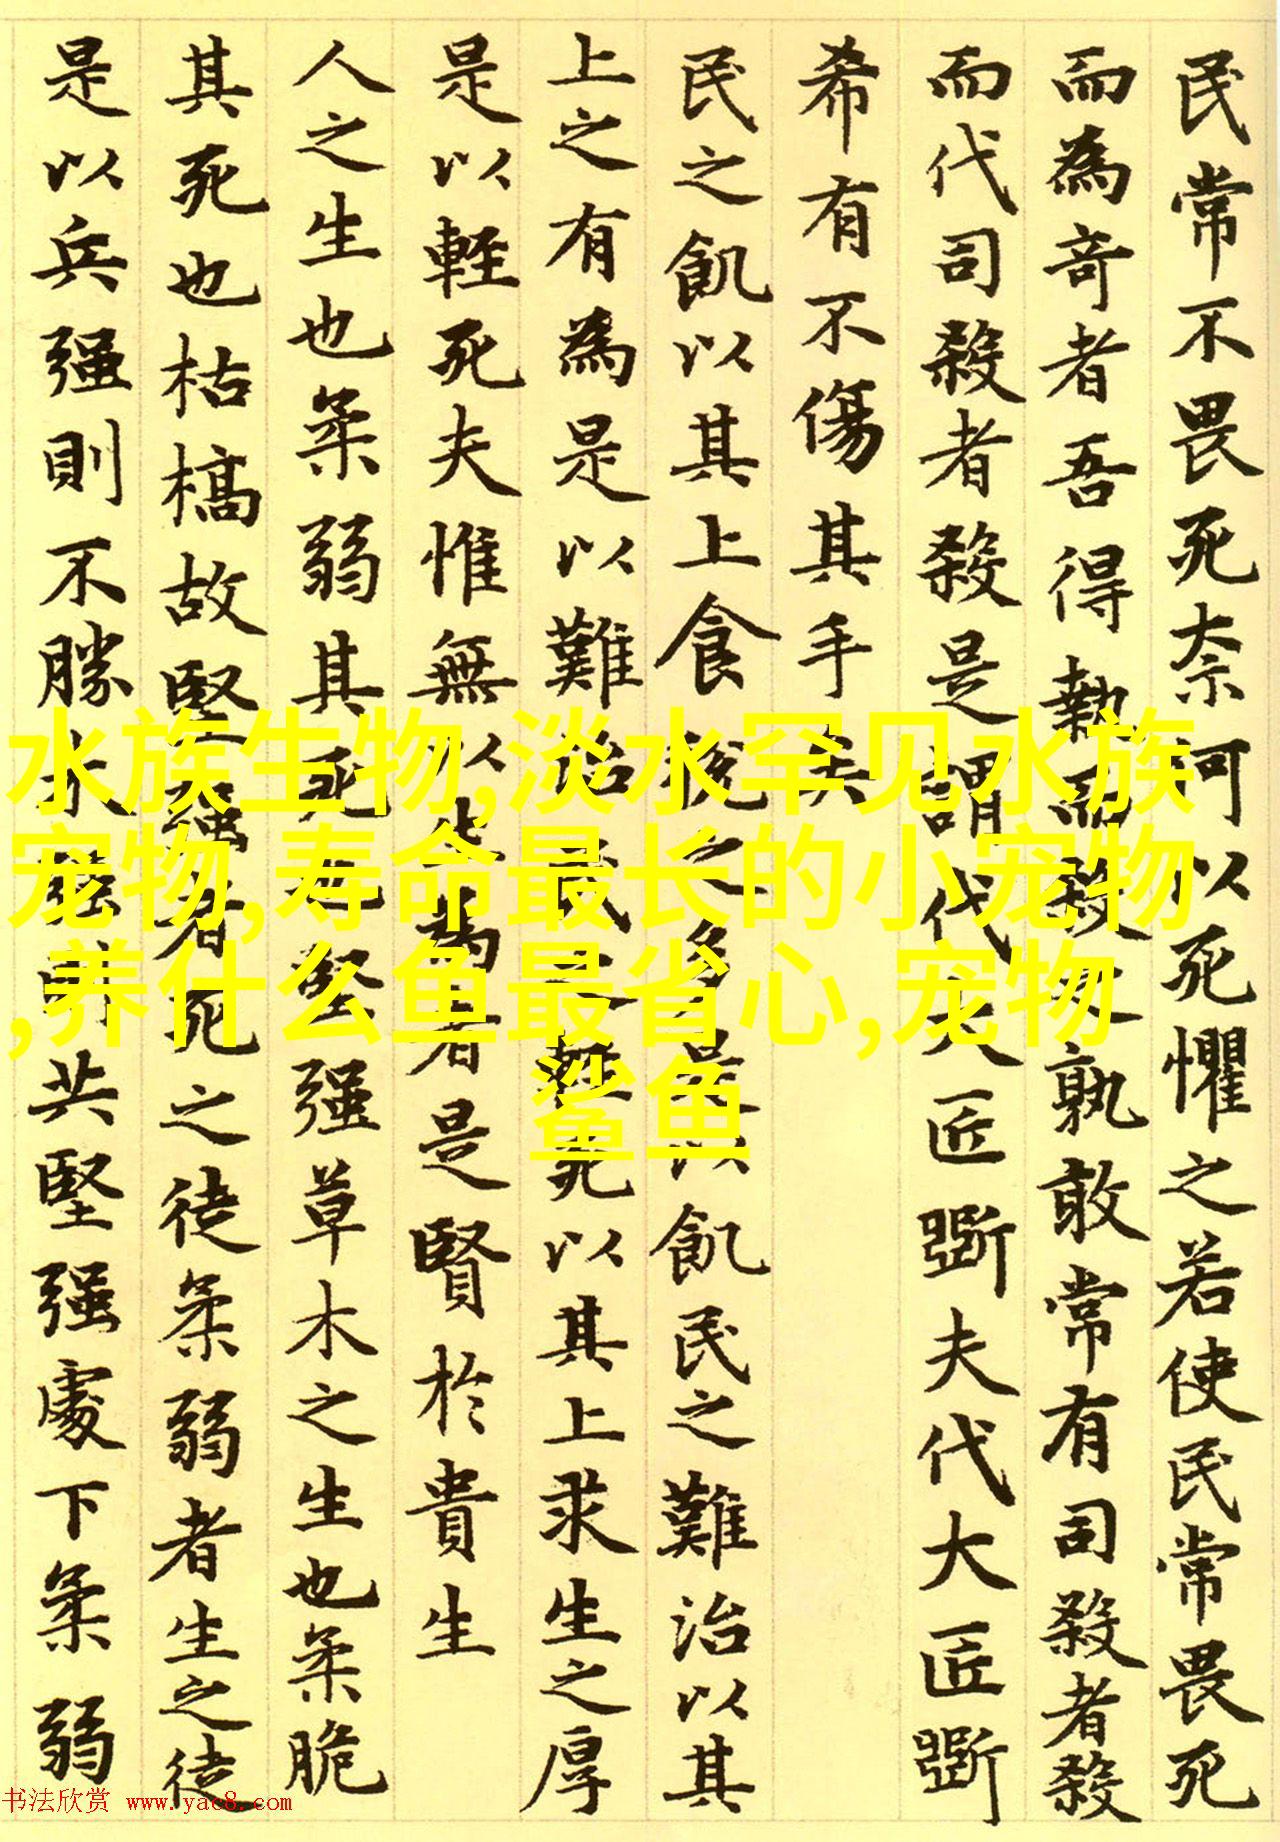 民常不畏死奈何以死懼之若使民常畏死
而為奇者吾得執而殺之孰敢常有司殺者殺
而代司殺者殺是謂代大匠斲夫代大匠斲
希有不傷其手矣
民之飢以其上食稅之多是以飢民之難治以其
上之有為是以難治民之輕死以其上求生之厚
是以輕死夫惟無以生為者是賢於貴生
人之生也柔弱其死也堅强草木之生也柔脆
其死也枯槁故堅强者死之徒柔弱者生之徒
是以兵强則不勝木强則共堅强處下柔弱
水族生物,淡水罕见水族
宠物,寿命最长的小宠物
,养什么鱼最省心,宠物
鲨鱼
书法欣赏 www.yac8.com